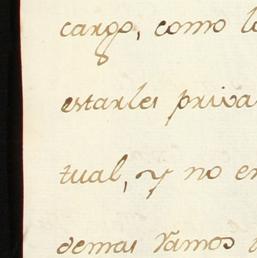 cargo, como l
estarles priva
tual, y no en
demas Ramos